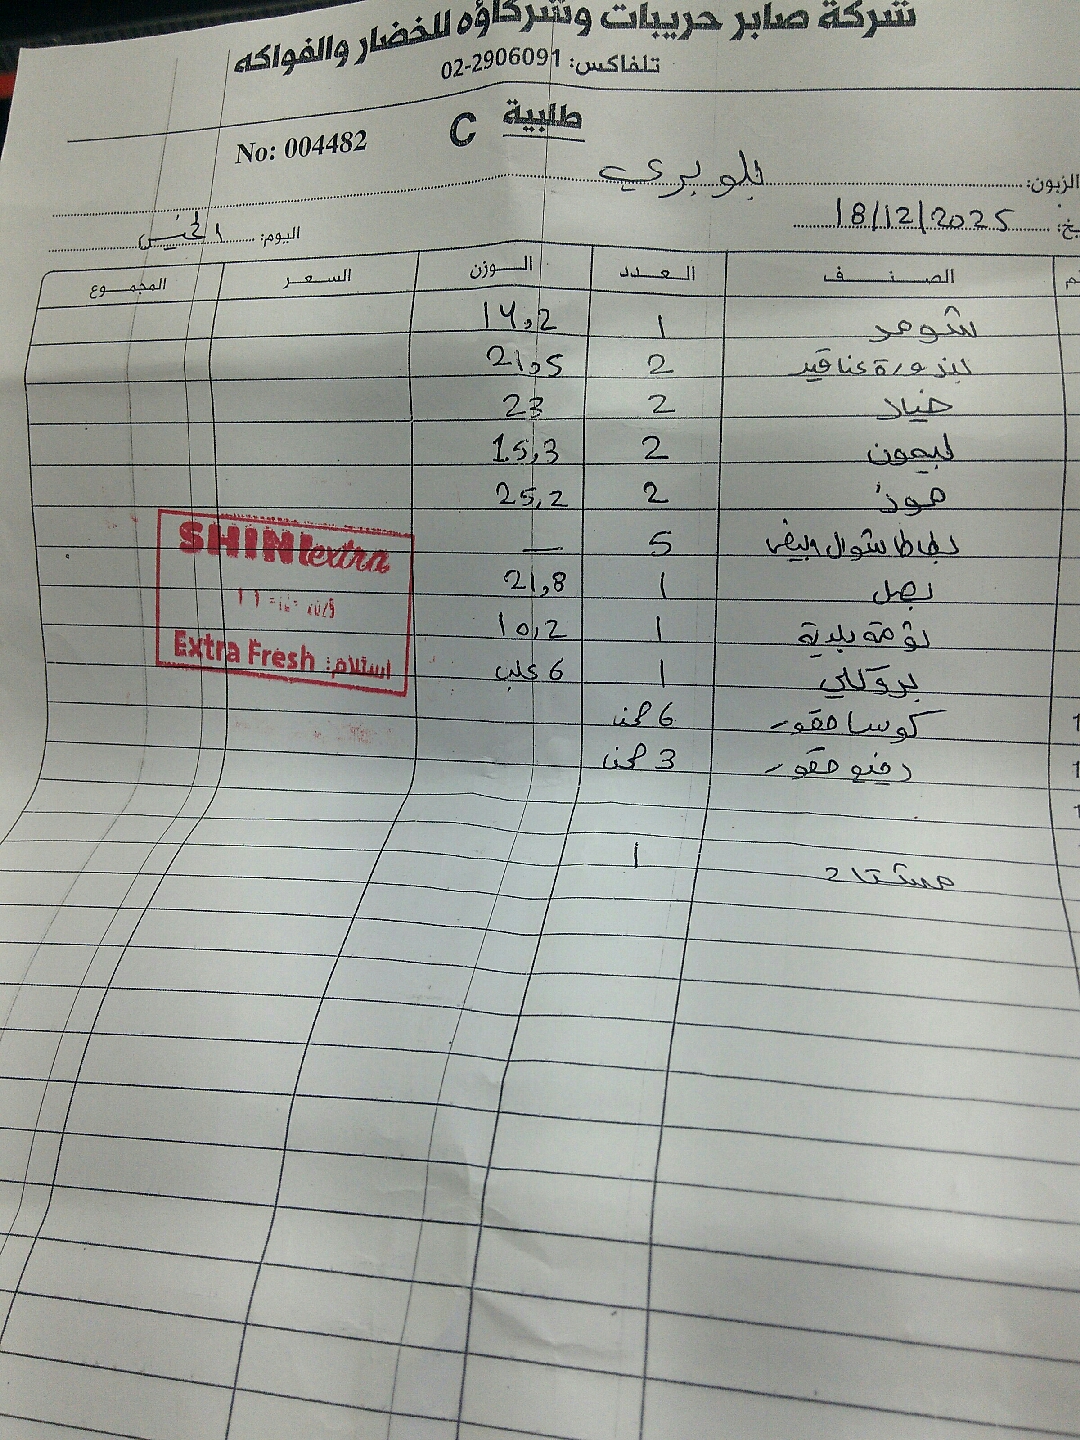 شركة صابر حريبات وشركاؤه للخضار والفواكه
تلفاكس: 02-2906091
طلبية C
No: 004482
الزبون: بلو بري
18/12/2025
اليوم: الخميس
الصنف العدد الوزن السعر المجموع
شومر 1 14,2
بندورة عناقيد 2 21,5
خيار 2 23
ليمون 2 15,3
موز 2 25,2
بطاطا شوال ابيض 5 —
بصل 1 21,8
ثومة بلدية 1 10,2
بروكلي 1 6 علب
كوسا محفور 6 صحن
محفور 3 صحن
1
SHINI extra
Extra Fresh استلام: